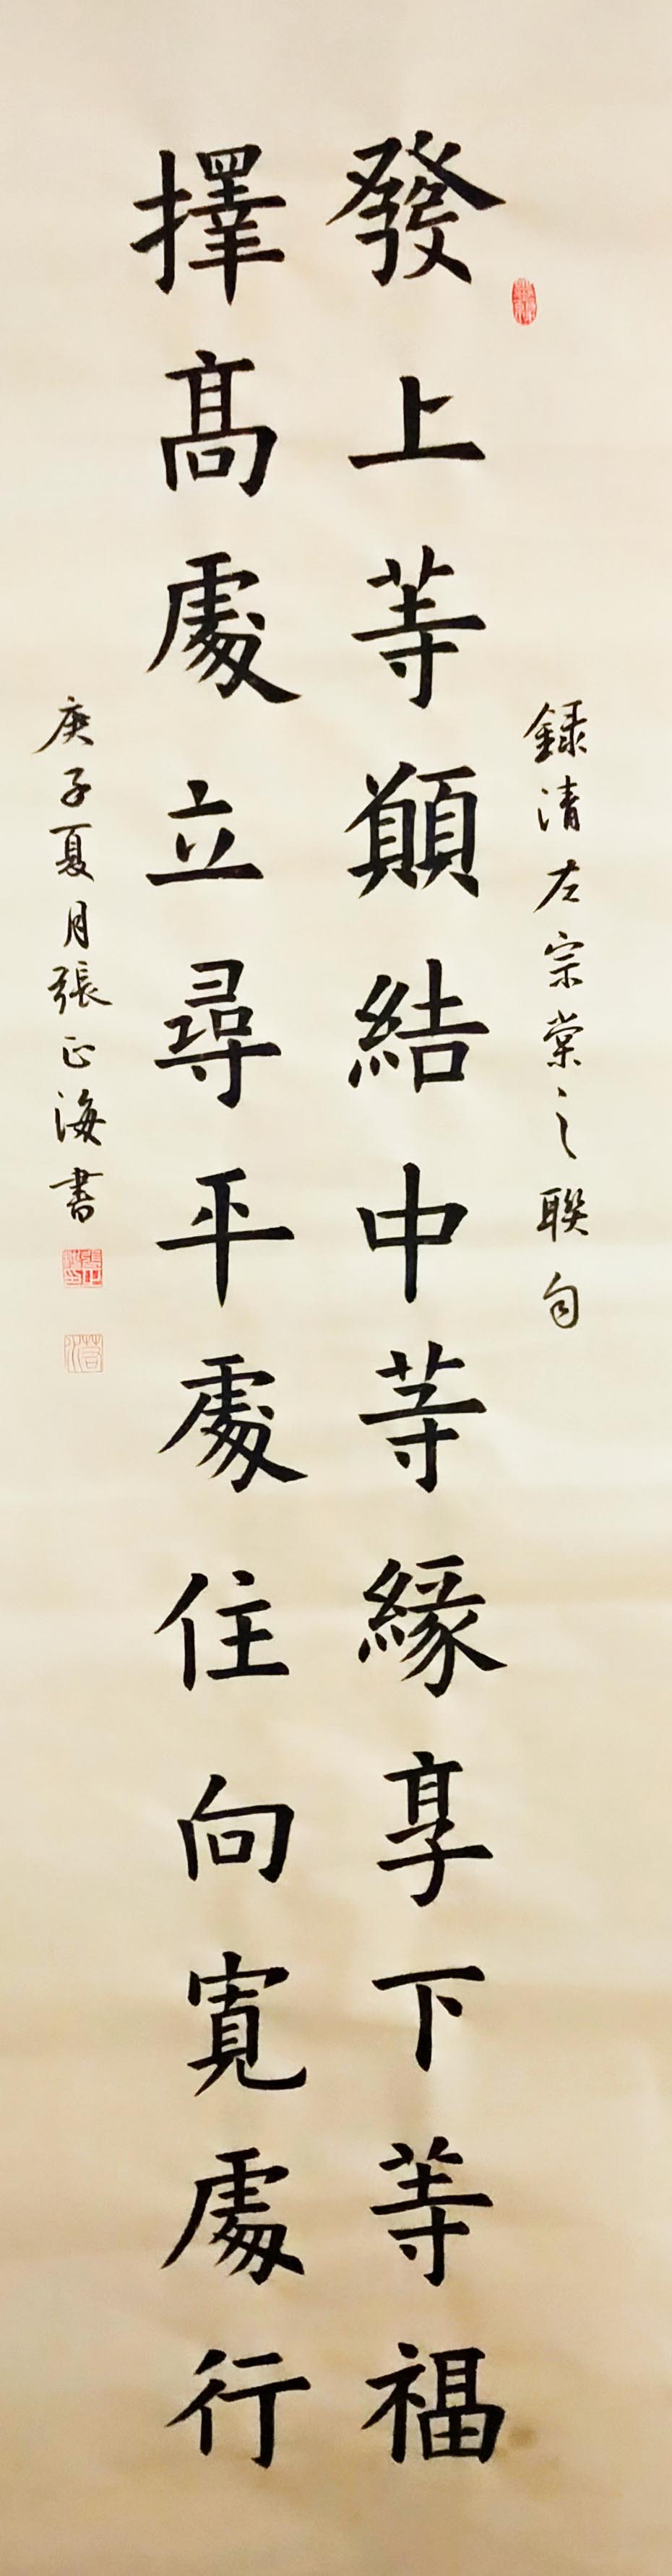 録清左宗棠之聯句
發上等願結中等緣享下等福
擇高處立尋平處住向寬處行
庚子夏月張正海書